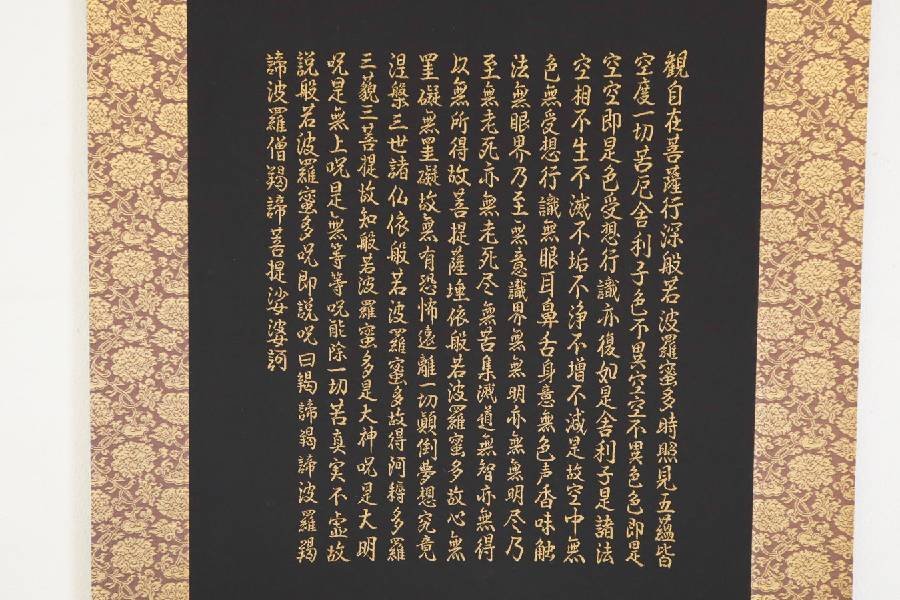 観自在菩薩行深般若波羅蜜多時照見五蘊皆
空度一切苦厄舎利子色不異空空不異色色即是
空空即是色受想行識亦復如是舎利子是諸法
空相不生不滅不垢不浄不増不減是故空中無
色無受想行識無眼耳鼻舌身意無色声香味触
法無眼界乃至無意識界無無明亦無無明尽乃
至無老死亦無老死尽無苦集滅道無智亦無得
以無所得故菩提薩埵依般若波羅蜜多故心無
罣礙無罣礙故無有恐怖遠離一切顛倒夢想究竟
涅槃三世諸仏依般若波羅蜜多故得阿耨多羅
三藐三菩提故知般若波羅蜜多是大神呪是大明
呪是無上呪是無等等呪能除一切苦真実不虚故
説般若波羅蜜多呪即説呪曰羯諦羯諦波羅羯
諦波羅僧羯諦菩提娑婆訶